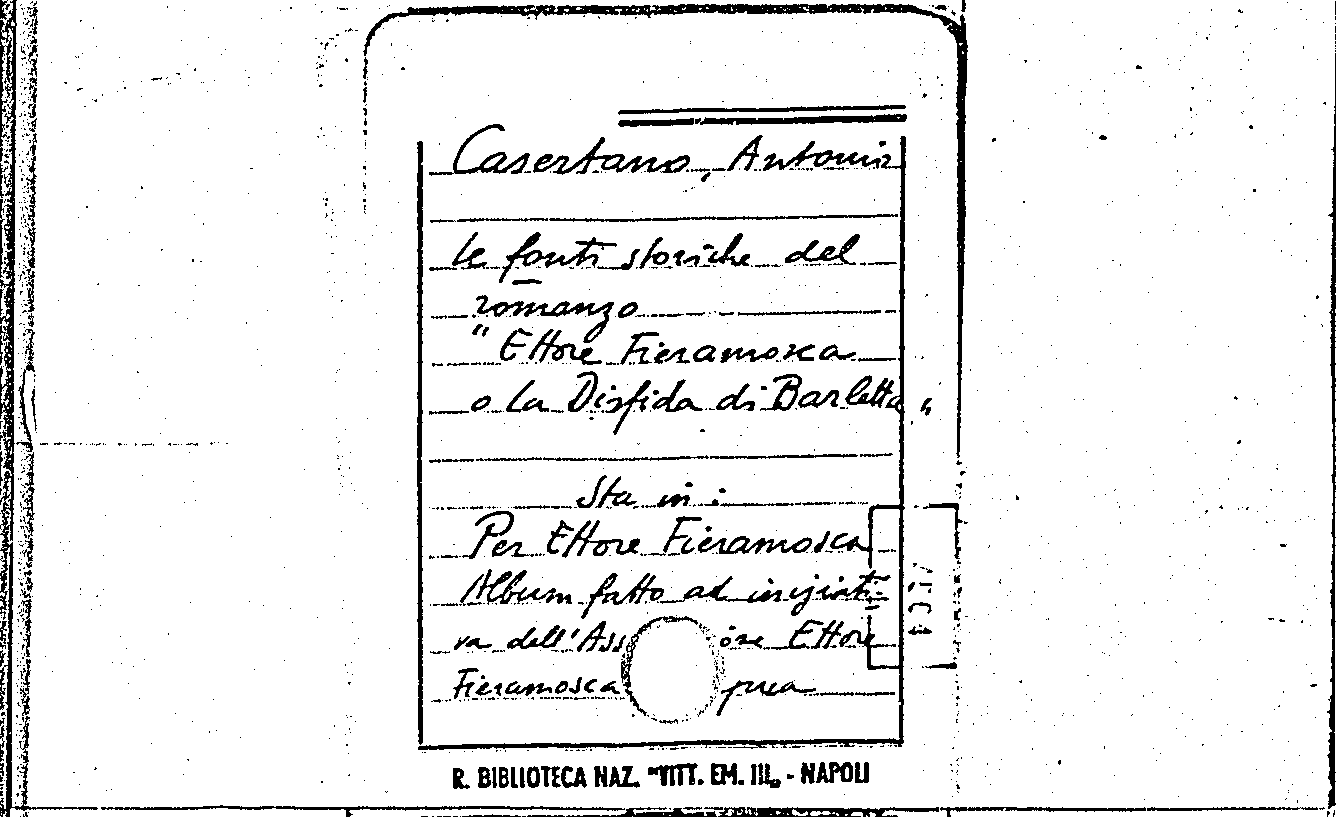 Casertano, Antonio
Le fonti storiche del
romanzo
"Ettore Fieramosca
o La Disfida di Barletta"
Sta in:
Per Ettore Fieramosca
Album fatto ad iniziati-
va dell'Ass one Ettore
Fieramosca pua
R. BIBLIOTECA NAZ. "VITT. EM. III„ - NAPOLI